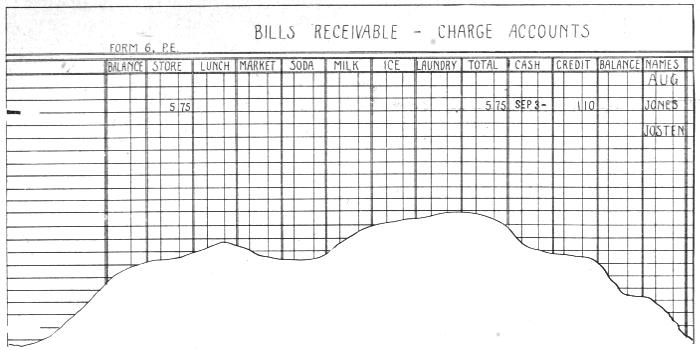 BILLS RECEIVABLE - CHARGE ACCOUNTS
FORM 6, P.E.
BALANCE STORE LUNCH MARKET SODA MILK ICE LAUNDRY TOTAL CASH CREDIT BALANCE NAMES
AUG
5 75 5 75 SEP 3- 1 10 JONES
JOSTEN